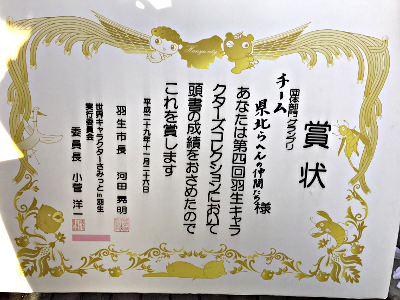 賞状
団体部門グランプリ
チーム 県北らへんの仲間たち様
あなたは第四回羽生キャラ
クターズコレクションにおいて
頭書の成績をおさめたので
これを賞します
平成二十九年十一月二十六日
羽生市長 河田晃明
世界キャラクターさみっとin羽生
実行委員会
委員長 小菅洋一